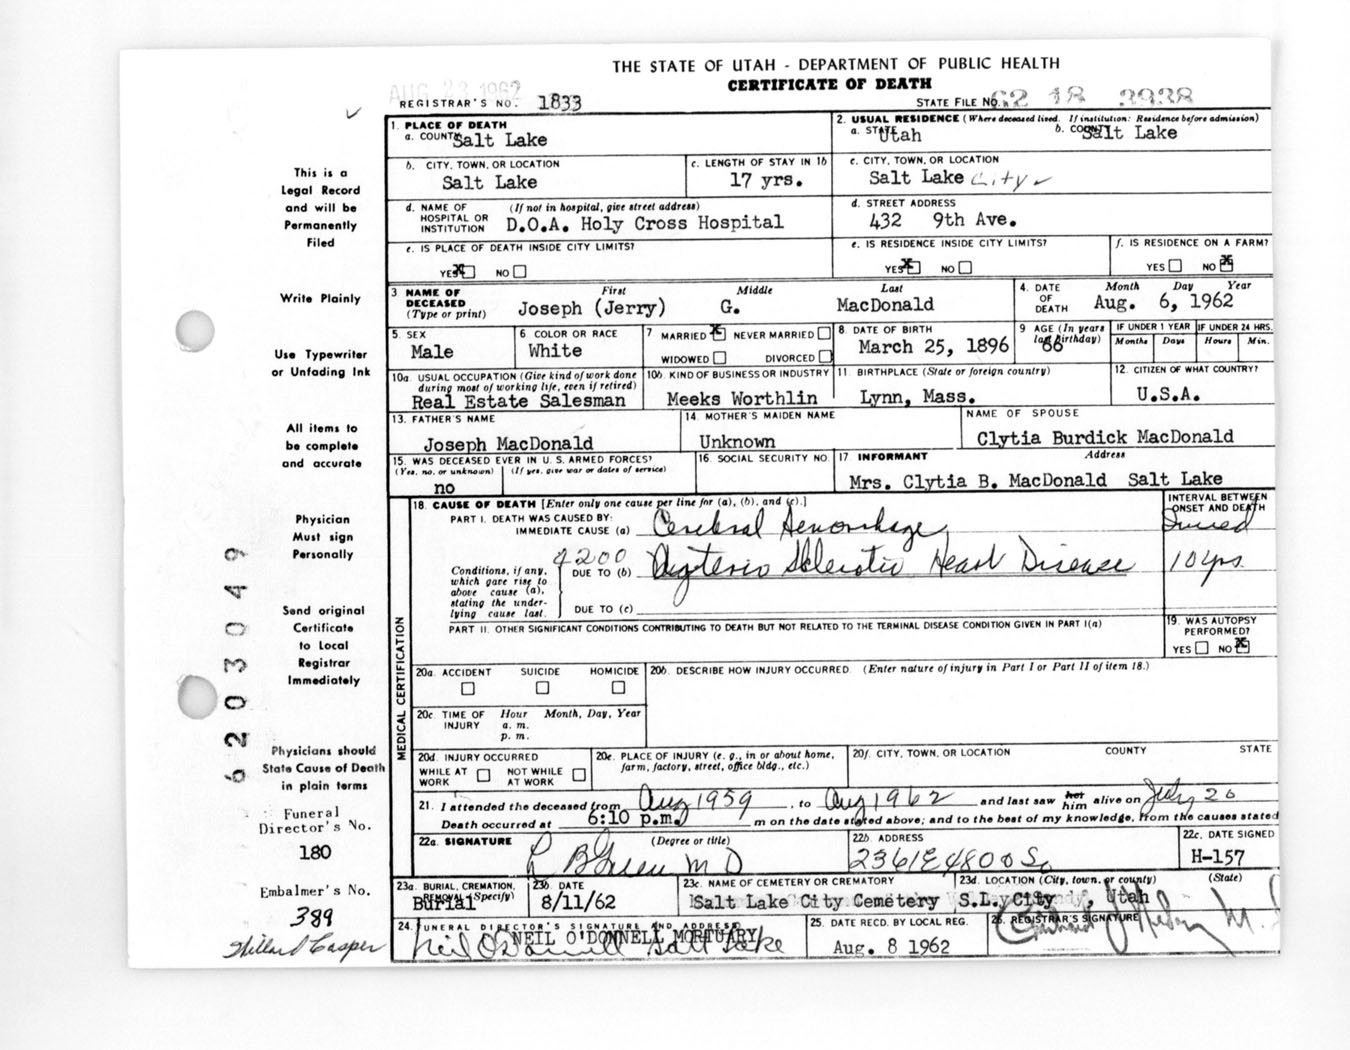 THE STATE OF UTAH - DEPARTMENT OF PUBLIC HEALTH
CERTIFICATE OF DEATH
AUG 23 1962
REGISTRAR'S NO. 1833
STATE FILE NO. 62 18 2938
1. PLACE OF DEATH
a. COUNTY Salt Lake
2. USUAL RESIDENCE (Where deceased lived. If institution: Residence before admission)
a. STATE Utah b. COUNTY Salt Lake
b. CITY, TOWN, OR LOCATION
Salt Lake
c. LENGTH OF STAY IN 1b
17 yrs.
c. CITY, TOWN, OR LOCATION
Salt Lake City
d. NAME OF HOSPITAL OR INSTITUTION (If not in hospital, give street address)
D.O.A. Holy Cross Hospital
d. STREET ADDRESS
432 9th Ave.
e. IS PLACE OF DEATH INSIDE CITY LIMITS?
YES X NO
e. IS RESIDENCE INSIDE CITY LIMITS?
YES X NO
f. IS RESIDENCE ON A FARM?
YES NO X
3. NAME OF DECEASED (Type or print)
First Middle Last
Joseph (Jerry) G. MacDonald
4. DATE OF DEATH
Month Day Year
Aug. 6, 1962
5. SEX
Male
6. COLOR OR RACE
White
7. MARRIED X NEVER MARRIED
WIDOWED DIVORCED
8. DATE OF BIRTH
March 25, 1896
9. AGE (In years last birthday)
66
IF UNDER 1 YEAR
Months Days
IF UNDER 24 HRS.
Hours Min.
10a. USUAL OCCUPATION (Give kind of work done during most of working life, even if retired)
Real Estate Salesman
10b. KIND OF BUSINESS OR INDUSTRY
Meeks Worthlin
11. BIRTHPLACE (State or foreign country)
Lynn, Mass.
12. CITIZEN OF WHAT COUNTRY?
U.S.A.
13. FATHER'S NAME
Joseph MacDonald
14. MOTHER'S MAIDEN NAME
Unknown
NAME OF SPOUSE
Clytia Burdick MacDonald
15. WAS DECEASED EVER IN U.S. ARMED FORCES?
(Yes, no, or unknown) (If yes, give war or dates of service)
no
16. SOCIAL SECURITY NO.
17. INFORMANT Address
Mrs. Clytia B. MacDonald Salt Lake
MEDICAL CERTIFICATION
18. CAUSE OF DEATH [Enter only one cause per line for (a), (b), and (c).]
INTERVAL BETWEEN ONSET AND DEATH
PART I. DEATH WAS CAUSED BY:
IMMEDIATE CAUSE (a) Cerebral Hemorrhage
4200
Conditions, if any, which gave rise to above cause (a), stating the underlying cause last.
DUE TO (b) Arterio Sklerotic Heart Disease 10 yrs.
DUE TO (c)
PART II. OTHER SIGNIFICANT CONDITIONS CONTRIBUTING TO DEATH BUT NOT RELATED TO THE TERMINAL DISEASE CONDITION GIVEN IN PART I(a)
19. WAS AUTOPSY PERFORMED?
YES NO X
20a. ACCIDENT SUICIDE HOMICIDE
20b. DESCRIBE HOW INJURY OCCURRED. (Enter nature of injury in Part I or Part II of item 18.)
20c. TIME OF INJURY Hour Month, Day, Year
a. m.
p. m.
20d. INJURY OCCURRED
WHILE AT WORK NOT WHILE AT WORK
20e. PLACE OF INJURY (e. g., in or about home, farm, factory, street, office bldg., etc.)
20f. CITY, TOWN, OR LOCATION COUNTY STATE
21. I attended the deceased from Aug 1959, to Aug 1962 and last saw her him alive on July 26
Death occurred at 6:10 p.m. m on the date stated above; and to the best of my knowledge, from the causes stated
22a. SIGNATURE (Degree or title)
L B Green M D
22b. ADDRESS
2361 E 4800 So
22c. DATE SIGNED
H-157
23a. BURIAL, CREMATION, REMOVAL (Specify)
Burial
23b. DATE
8/11/62
23c. NAME OF CEMETERY OR CREMATORY
Salt Lake City Cemetery
23d. LOCATION (City, town, or county) (State)
S.L. City, Utah
24. FUNERAL DIRECTOR'S SIGNATURE AND ADDRESS
NEIL O'DONNELL MORTUARY
Neil O'Donnell Salt Lake
25. DATE RECD. BY LOCAL REG.
Aug. 8 1962
26. REGISTRAR'S SIGNATURE
This is a
Legal Record
and will be
Permanently
Filed
Write Plainly
Use Typewriter
or Unfading Ink
All items to
be complete
and accurate
Physician
Must sign
Personally
Send original
Certificate
to Local
Registrar
Immediately
Physicians should
State Cause of Death
in plain terms
Funeral
Director's No.
180
Embalmer's No.
389
Willard Casper
6203049